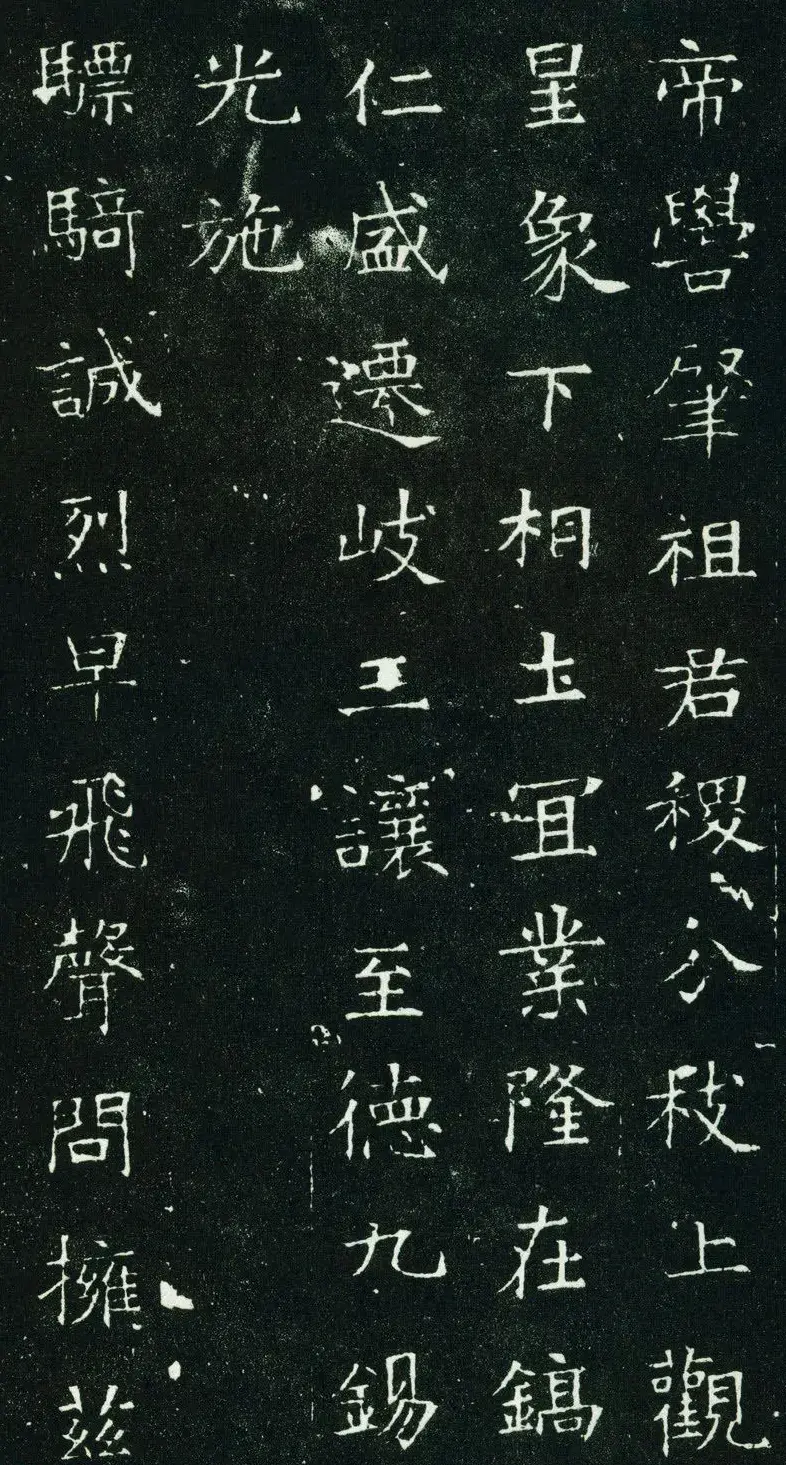 帝嚳肇祖君稷分枝上觀
星象下相土宜業隆在鎬
仁盛遷岐三讓至德九錫
光施
驃騎誠烈早飛聲問擁茲